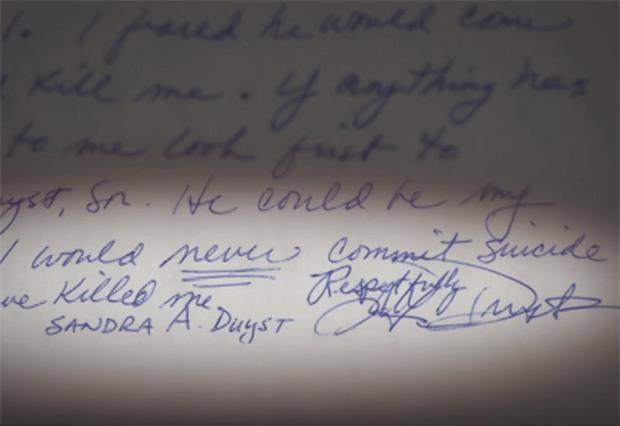 I feared he would come
kill me. If anything has
to me look first to
uyst, Sr. He could be my
I would never commit suicide
ve killed me. Respectfully
SANDRA A. DUYST